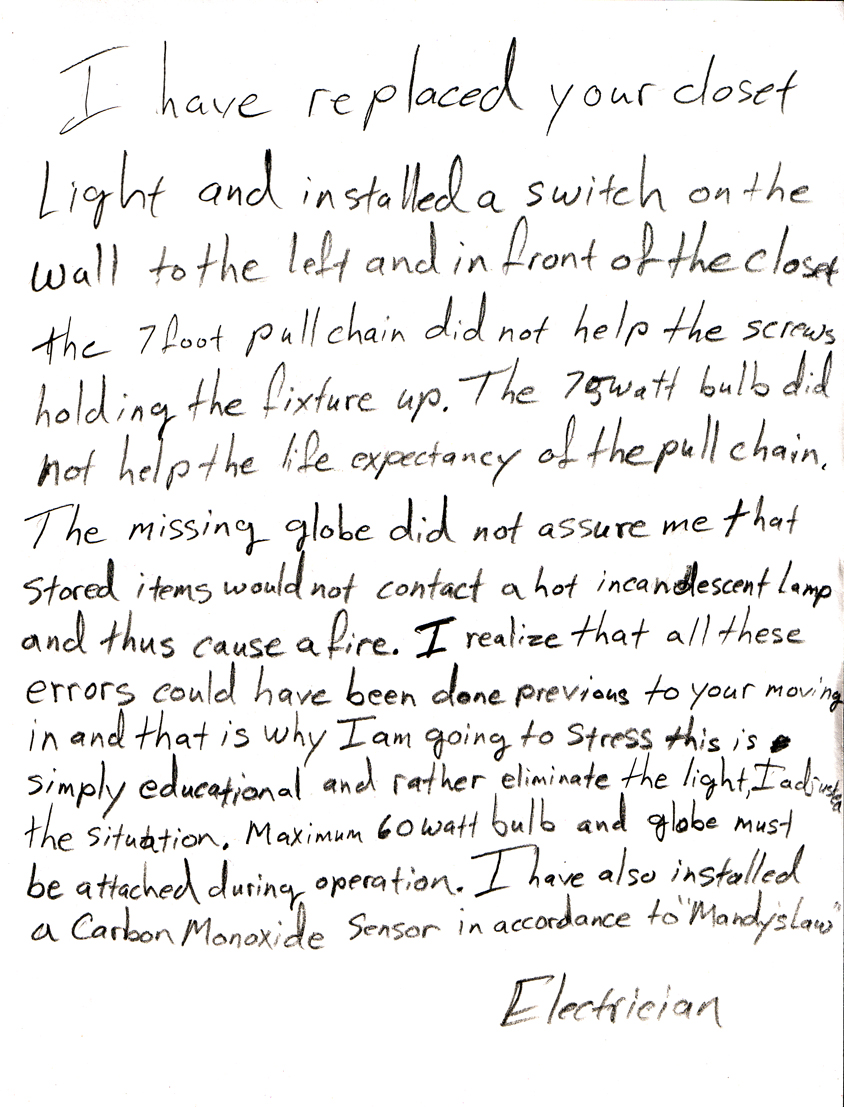 I have replaced your closet
Light and installed a switch on the
wall to the left and in front of the closet
the 7 foot pull chain did not help the screws
holding the fixture up. The 75watt bulb did
not help the life expectancy of the pull chain.
The missing globe did not assure me that
stored items would not contact a hot incandescent lamp
and thus cause a fire. I realize that all these
errors could have been done previous to your moving
in and that is why I am going to stress this is
simply educational and rather eliminate the light, I adjusted
the situation. Maximum 60watt bulb and globe must
be attached during operation. I have also installed
a Carbon Monoxide Sensor in accordance to "Mandy's Law"
Electrician